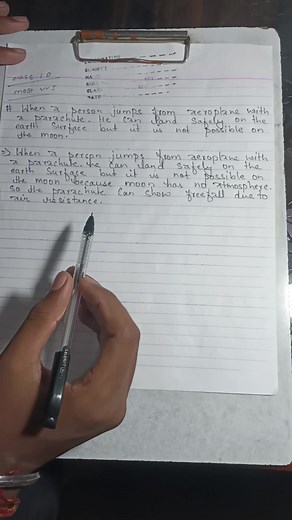 # When a person jumps from aeroplane with
a parachute. He can land safely on the
earth surface but it is not possible on
the moon.
=> When a person jumps from aeroplane with
a parachute. He can land safely on the
earth surface but it is not possible on
the moon because moon has no atmosphere.
so the parachute can show freefall due to
air resistance.